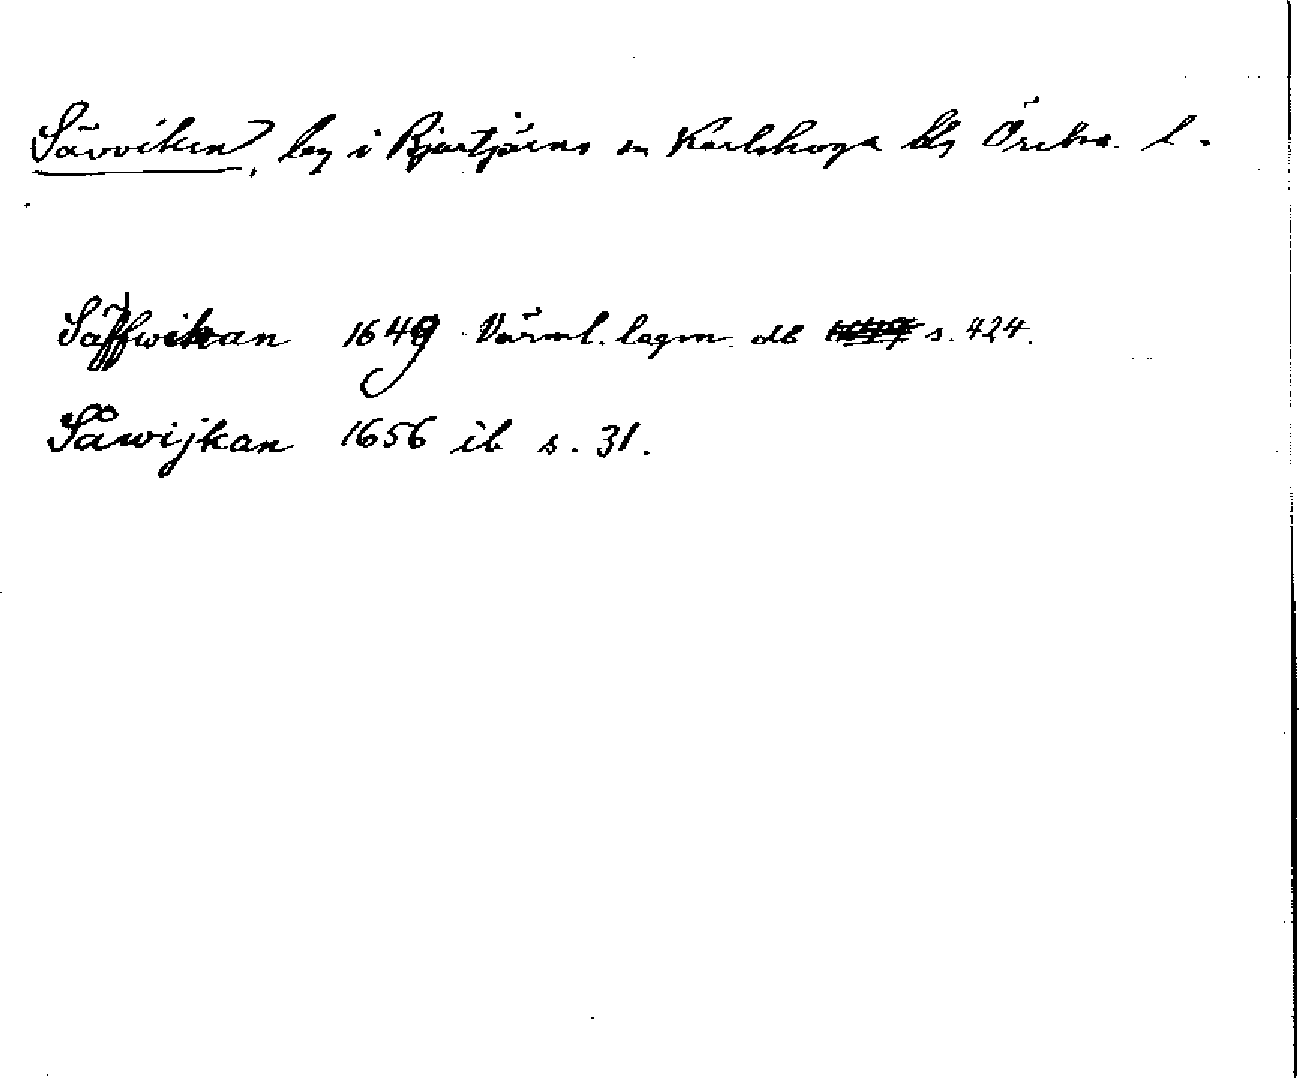 Sävviken, by i Bjurtjärns sn Karlskoga bg Örebro l.
Säffwikan 1649 Värml. lagm. db s. 424.
Såwijkan 1656 ib s. 31.